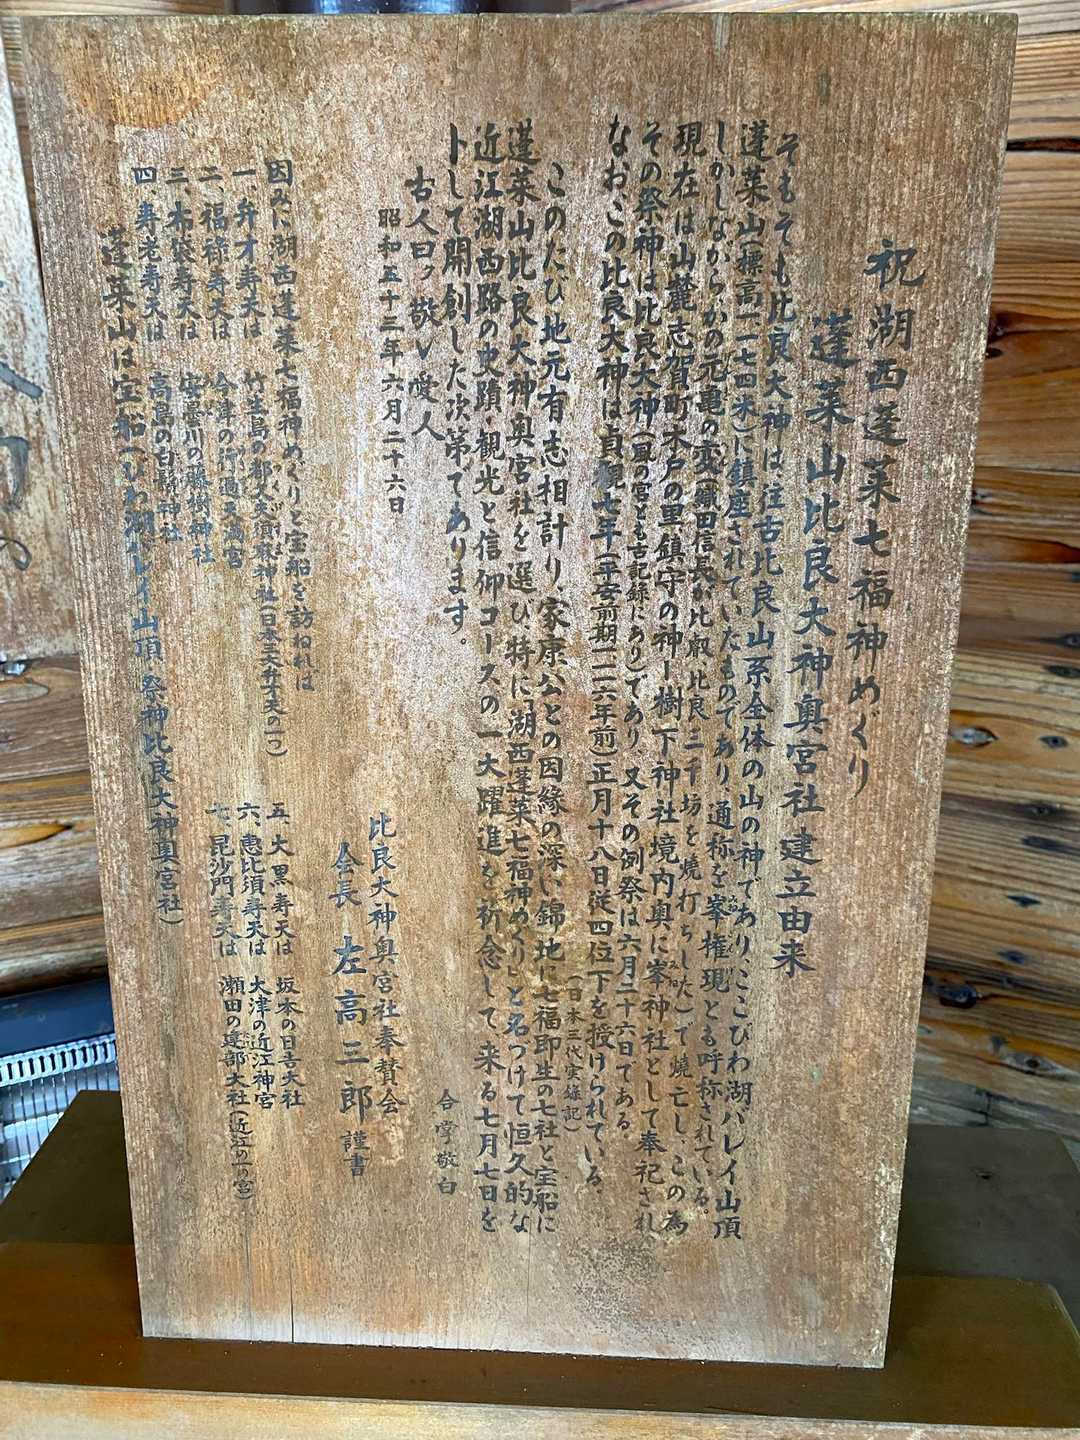 祝湖西蓬莱七福神めぐり
蓬莱山比良大神奥宮社建立由来
そもそも比良大神は往古比良山系全体の山の神であり、ここびわ湖バレイ山頂
蓬莱山(標高一一七四米)に鎮座されていたものであり、通称を峯権現とも呼称されている。
しかしながらかの元亀の変(織田信長が比叡、比良三千坊を焼打ちした)で焼亡し、この為
現在は山麓志賀町木戸の里鎮守の神ー樹下神社境内奥に峯神社として奉祀され
その祭神は比良大神(風の宮とも古記録にあり)であり、又その例祭は六月二十六日である。
なおこの比良大神は貞観七年(平安前期一一一六年前)正月十八日従四位下を授けられている。
(日本三代実録記)
このたび地元有志相計り、家康公との因縁の深い錦地に七福即生の七社と宝船に
蓬莱山比良大神奥宮社を選び特に「湖西蓬莱七福神めぐり」と名づけて恒久的な
近江湖西路の史蹟・観光と信仰コースの一大躍進を祈念して来る七月七日を
卜して開創した次第であります。
古人曰ク敬V愛人
合掌敬白
昭和五十三年六月二十六日
比良大神奥宮社奉賛会
会長 左高三郎 謹書
因みに湖西蓬莱七福神めぐりと宝船を訪ねれば
一、弁才寿天は 竹生島の都久夫須麻神社(日本三大弁才天の一つ)
二、福禄寿天は 今津の行過天満宮
三、布袋寿天は 安曇川の藤樹神社
四、寿老寿天は 高島の白鬚神社
五、大黒寿天は 坂本の日吉大社
六、恵比須寿天は 大津の近江神宮
七、昆沙門寿天は 瀬田の建部大社(近江の一の宮)
蓬莱山は宝船(びわ湖バレイ山頂 祭神比良大神真宮社)